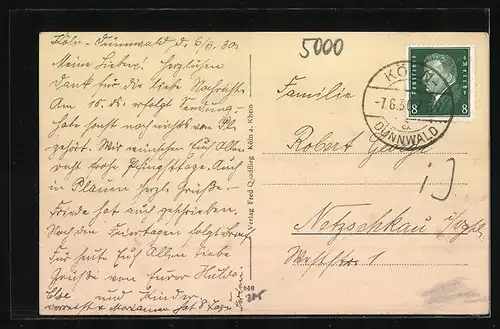 Köln-Dünnwald, d. 6/6. 30.
Meine Lieben! Herzlichen
Dank für die liebe Nachricht.
Am 10. ds. erfolgt Sendung!
habe sonst noch nichts von Pl.
gehört. Wir wünschen Euch Allen
recht frohe Pfingsttage. Auch
in Plauen herzl. Grüße.
Friede hat auch geschrieben.
Nach den Feiertagen folgt Brief.
Für heute Euch Allen liebe
Grüße von Eurer Hulda
und Kinder
verreist z. Marianne hat 8 Tage
Verlag Fred Quadflieg Köln a. Rhein
5000
Deutsches Reich
8 8
KÖLN
-7.6.30
a
DÜNNWALD
Familie
Robert
Netzschkau
Weststr. 1